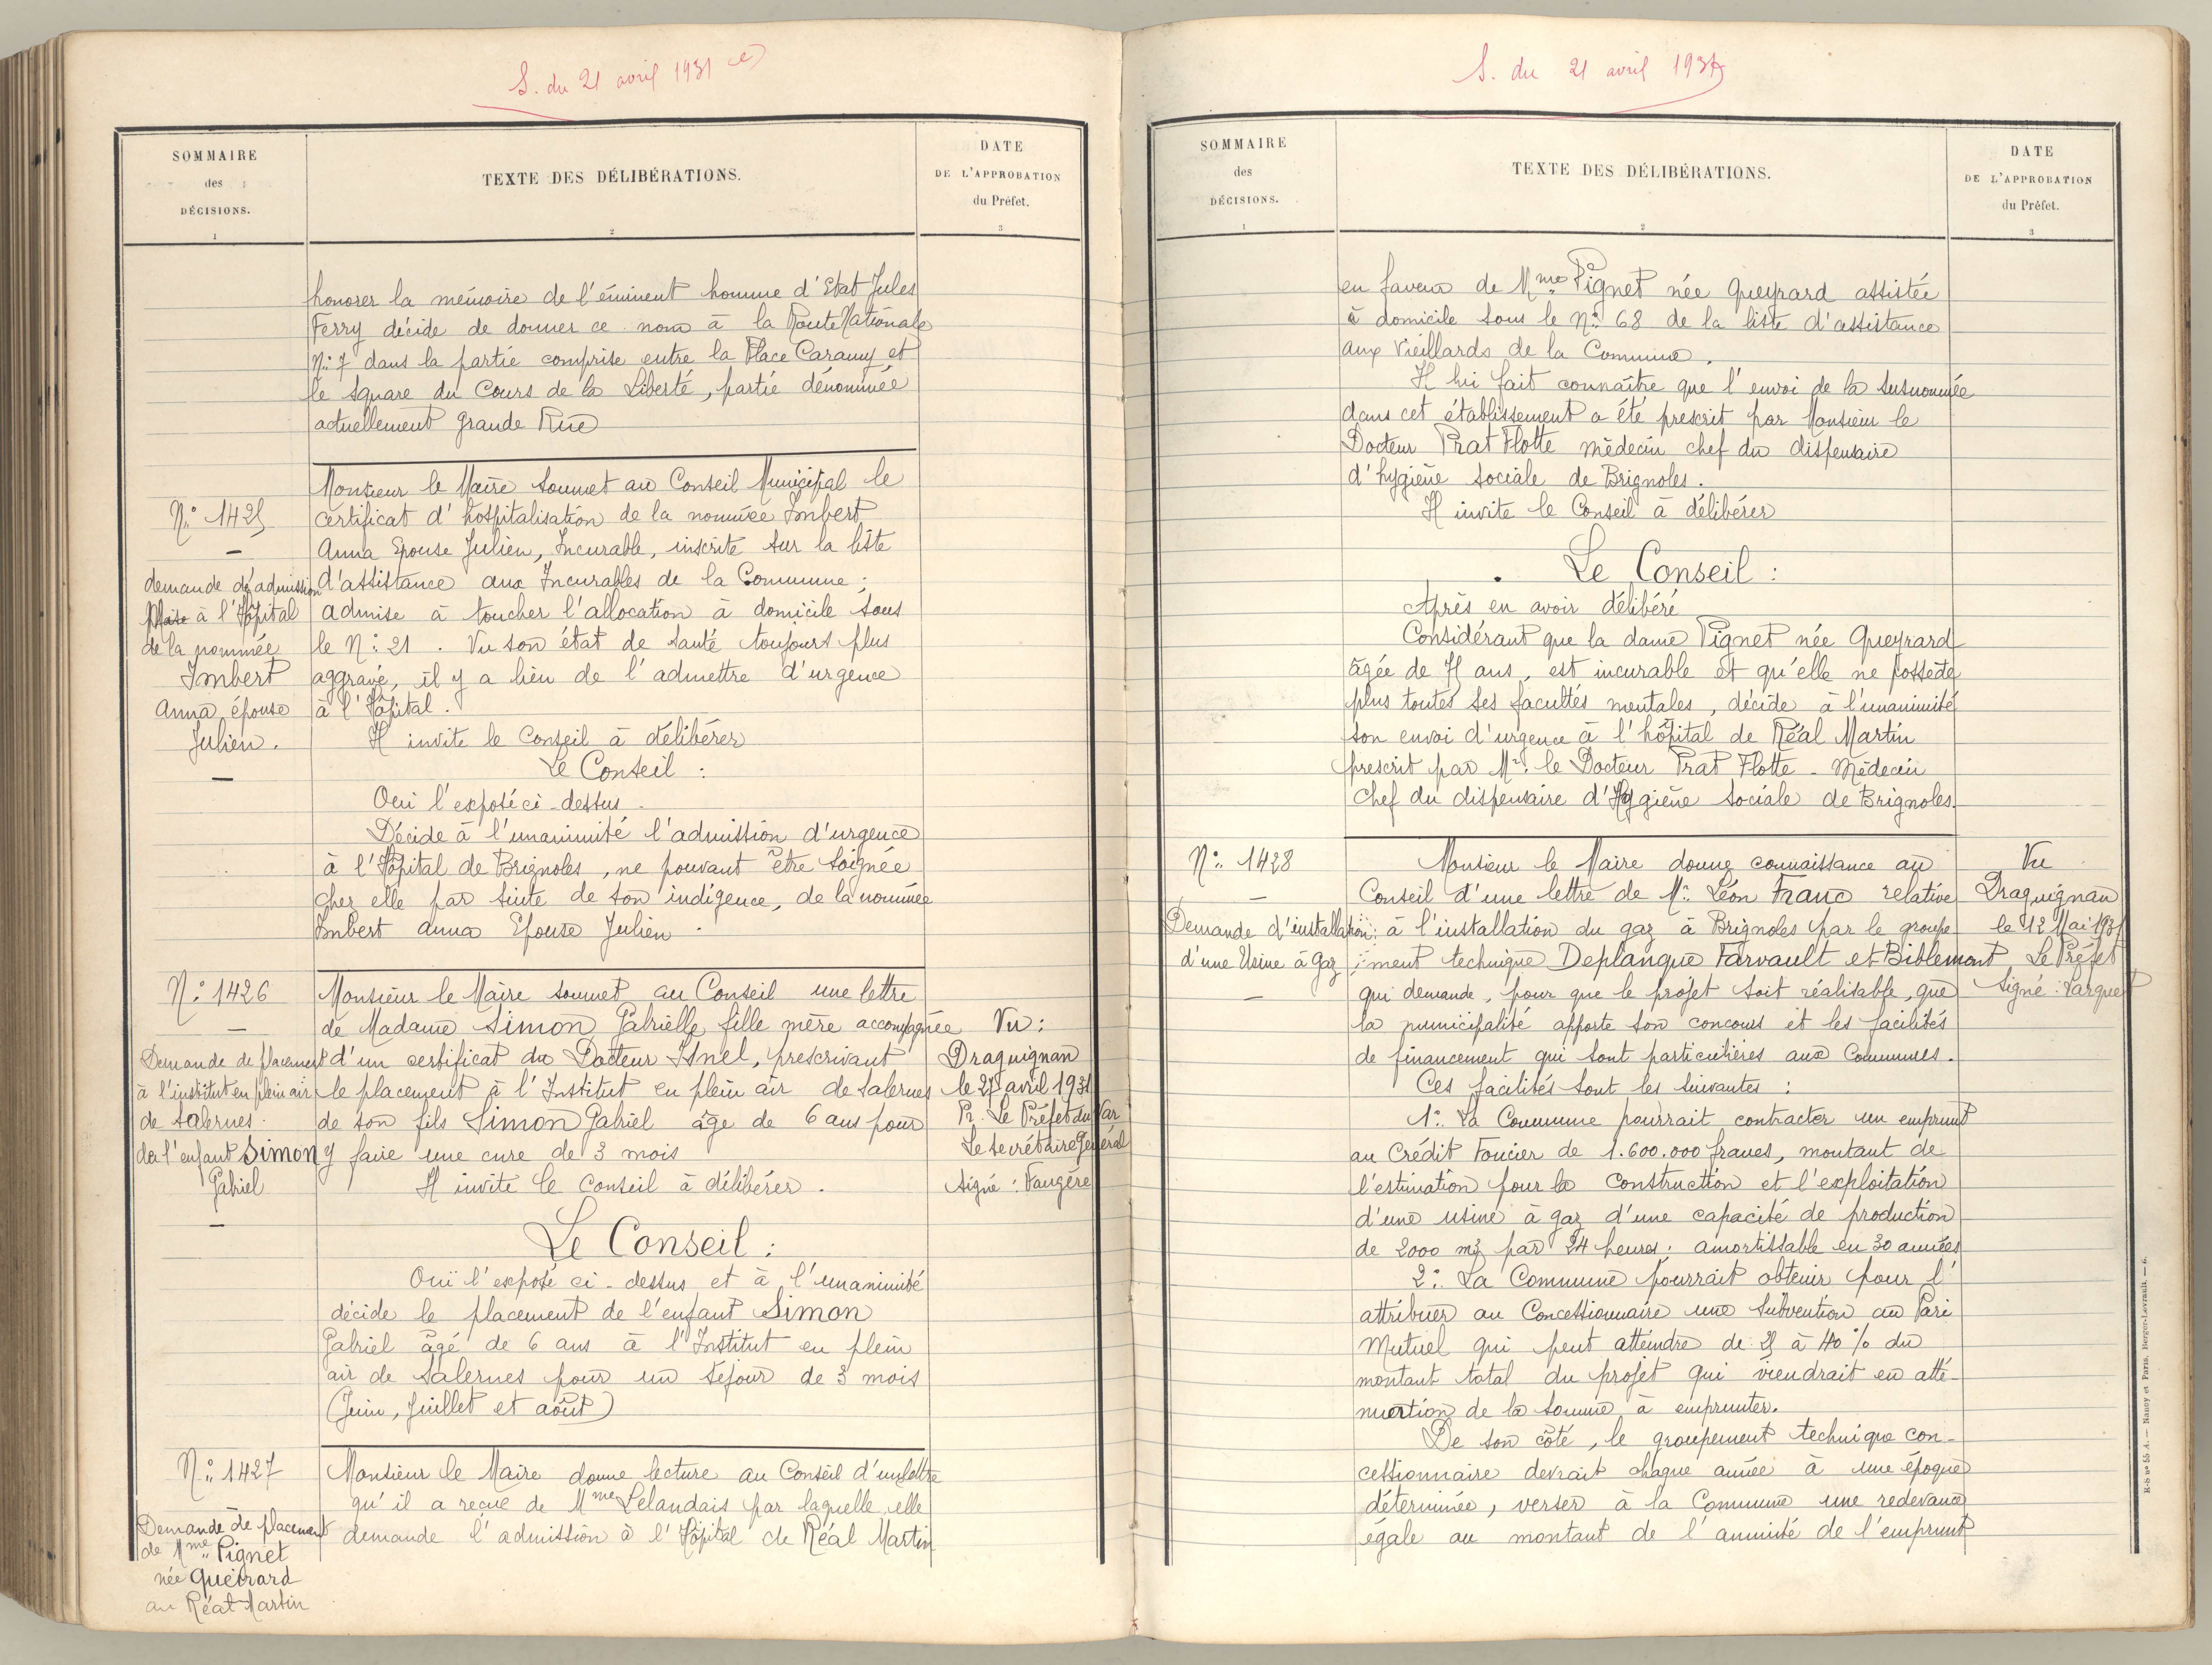 S. du 21 avril 1931
SOMMAIRE
des
DÉCISIONS.
1
TEXTE DES DÉLIBÉRATIONS.
2
DATE
DE L'APPROBATION
du Préfet.
3
honorer la mémoire de l'éminent homme d'Etat Jules
Ferry décide de donner ce nom à la Route Nationale
N° 7 dans la partie comprise entre la Place Caramy et
le square du Cours de la Liberté, partie dénommée
actuellement Grande Rue
N° 1425
—
demande d'admission
à l'Hôpital
de la nommée
Imbert
Anna épouse
Julien.
—
Monsieur le Maire soumet au Conseil Municipal le
certificat d'hospitalisation de la nommée Imbert
Anna Epouse Julien, Incurable, inscrite sur la liste
d'assistance aux Incurables de la Commune ;
admise à toucher l'allocation à domicile sous
le N° 21. Vu son état de santé toujours plus
aggravé, il y a lieu de l'admettre d'urgence
à l'Hôpital.
Il invite le Conseil à délibérer
Le Conseil :
Oui l'exposé ci-dessus.
Décide à l'unanimité l'admission d'urgence
à l'Hôpital de Brignoles, ne pouvant être soignée
chez elle par suite de son indigence, de la nommée
Imbert Anna Epouse Julien.
N° 1426
—
Demande de placement
à l'institut en plein air
de Salernes.
de l'enfant Simon
Gabriel
—
Monsieur le Maire soumet au Conseil une lettre
de Madame Simon Gabrielle fille mère accompagnée
d'un certificat du Docteur Isnel, prescrivant
le placement à l'Institut en plein air de Salernes
de son fils Simon Gabriel âge de 6 ans pour
y faire une cure de 3 mois
Il invite le Conseil à délibérer.
Vu :
Draguignan
le 27 avril 1931
Pr. Le Préfet du Var
Le Secrétaire Général
Signé : Faugère
Le Conseil :
Ouï l'exposé ci-dessus et à l'unanimité
décide le placement de l'enfant Simon
Gabriel âgé de 6 ans à l'Institut en plein
air de Salernes pour un séjour de 3 mois
(Juin, Juillet et août)
N° 1427
Demande de placement
de Mme Pignet
née Queirard
au Réal-Martin
Monsieur le Maire donne lecture au Conseil d'un lettre
qu'il a reçue de Mme Lelandais par laquelle elle
demande l'admission à l'Hôpital de Réal Martin
S. du 21 avril 1931
SOMMAIRE
des
DÉCISIONS.
1
TEXTE DES DÉLIBÉRATIONS.
2
DATE
DE L'APPROBATION
du Préfet.
3
en faveur de Mme Pignet née Queyrard assistée
à domicile sous le N° 68 de la liste d'assistance
aux Vieillards de la Commune.
Il lui fait connaître que l'envoi de la susnommée
dans cet établissement a été prescrit par Monsieur le
Docteur Prat Flotte médecin chef du dispensaire
d'hygiène sociale de Brignoles.
Il invite le Conseil à délibérer
Le Conseil :
Après en avoir délibéré
Considérant que la dame Pignet née Queyrard
âgée de ans, est incurable et qu'elle ne possède
plus toutes ses facultés mentales, décide à l'unanimité
son envoi d'urgence à l'hôpital de Réal Martin
prescrit par Mr. le Docteur Prat Flotte - Médecin
Chef du dispensaire d'Hygiène Sociale de Brignoles.
N° 1428
—
Demande d'installation
d'une Usine à Gaz
—
Monsieur le Maire donne connaissance au
Conseil d'une lettre de Mr. Léon Franc relative
à l'installation du gaz à Brignoles par le groupe
ment technique Deplanque Farvault et Biblemont
qui demande, pour que le projet soit réalisable, que
la municipalité apporte son concours et les facilités
de financement qui sont particulières aux Communes.
Ces facilités sont les suivantes :
1° La Commune pourrait contracter un emprunt
au Crédit Foncier de 1.600.000 francs, montant de
l'estimation pour la construction et l'exploitation
d'une usine à gaz d'une capacité de production
de 2000 m3 par 24 heures ; amortissable en 30 années
2° La Commune pourrait obtenir pour l'
attribuer au Concessionnaire une subvention au Pari
Mutuel qui peut atteindre de 25 à 40 % du
montant total du projet qui viendrait en atté-
nuation de la somme à emprunter.
De son côté, le groupement technique con-
cessionnaire devrait chaque année à une époque
déterminée, verser à la Commune une redevance
égale au montant de l'annuité de l'emprunt
Vu
Draguignan
le 12 Mai 1931
Le Préfet
Signé :
R-S n° 55 A. — Nancy et Paris. Berger-Levrault. — 6.